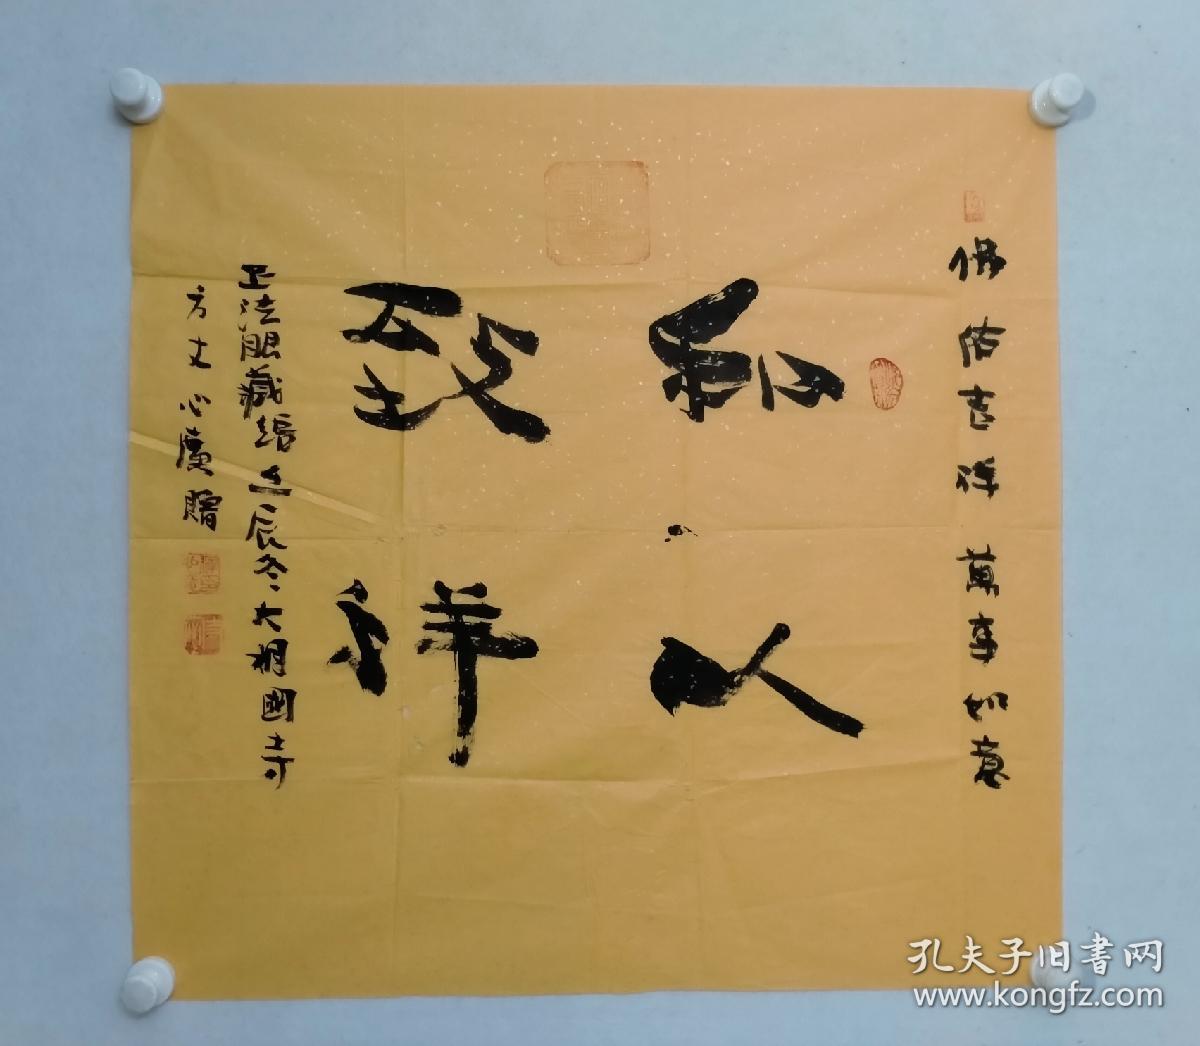 佛佑吉祥 萬事如意
和以
致祥
正法眼藏 歲在壬辰冬大相國寺
方丈心廣贈
孔夫子旧書网
www.kongfz.com